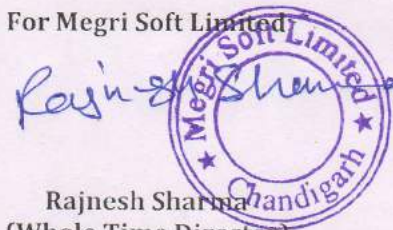 For Megri Soft Limited
Rajnesh Sharma
★ Megri Soft Limited ★
Chandigarh
Rajnesh Sharma
(Whole Time Director)